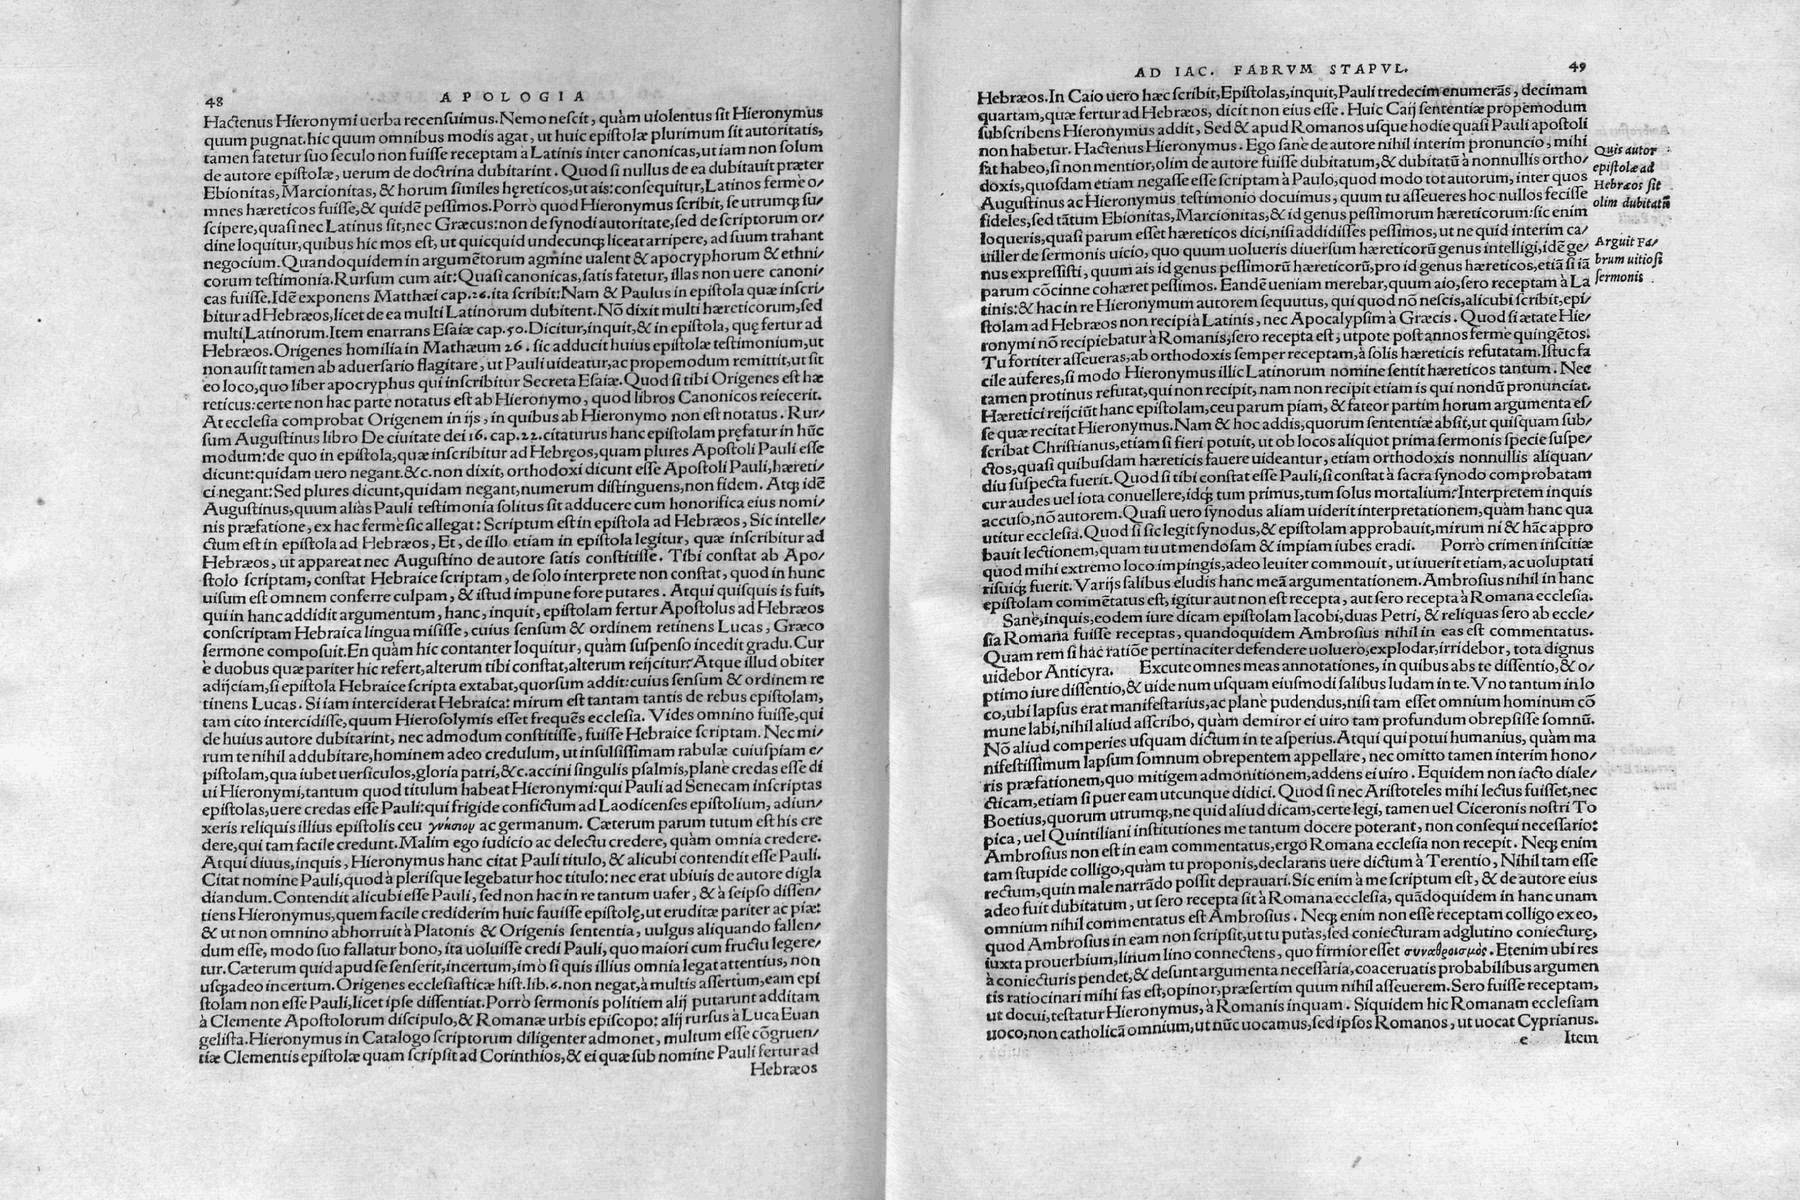 48
APOLOGIA
Hactenus Hieronymi uerba recensuimus. Nemo nescit, quàm uiolentus sit Hieronymus
quum pugnat. hic quum omnibus modis agat, ut huic epistolæ plurimum sit autoritatis,
tamen fatetur suo seculo non fuisse receptam a Latinis inter canonicas, ut iam non solum
de autore epistolæ, uerum de doctrina dubitarint. Quod si nullus de ea dubitauit præter
Ebionitas, Marcionitas, & horum similes hęreticos, ut ais: consequitur, Latinos ferme o/
mnes hæreticos fuisse, & quidē pessimos. Porrò quod Hieronymus scribit, se utrumq; su/
scipere, quasi nec Latinus sit, nec Græcus: non de synodi autoritate, sed de scriptorum or/
dine loquitur, quibus hic mos est, ut quicquid undecunq; liceat arripere, ad suum trahant
negocium. Quandoquidem in argumētorum agmine ualent & apocryphorum & ethni/
corum testimonia. Rursum cum ait: Quasi canonicas, satis fatetur, illas non uere canoni/
cas fuisse. Idē exponens Matthæi cap. 26. ita scribit: Nam & Paulus in epistola quæ inscri/
bitur ad Hebræos, licet de ea multi Latinorum dubitent. Nō dixit multi hæreticorum, sed
multi Latinorum. Item enarrans Esaiæ cap. 50. Dicitur, inquit, & in epistola, quę fertur ad
Hebræos. Origenes homilia in Mathæum 26. sic adducit huius epistolæ testimonium, ut
non ausit tamen ab aduersario flagitare, ut Pauli uideatur, ac propemodum remittit, ut sit
eo loco, quo liber apocryphus qui inscribitur Secreta Esaiæ. Quod si tibi Origenes est hæ
reticus: certe non hac parte notatus est ab Hieronymo, quod libros Canonicos reiecerit.
At ecclesia comprobat Origenem in ijs, in quibus ab Hieronymo non est notatus. Rur/
sum Augustinus libro De ciuitate dei 16. cap. 22. citaturus hanc epistolam pręfatur in hūc
modum: de quo in epistola, quæ inscribitur ad Hebręos, quam plures Apostoli Pauli esse
dicunt: quidam uero negant. &c. non dixit, orthodoxi dicunt esse Apostoli Pauli, hæreti/
ci negant: Sed plures dicunt, quidam negant, numerum distinguens, non fidem. Atq; idē
Augustinus, quum aliàs Pauli testimonia solitus sit adducere cum honorifica eius nomi/
nis præfatione, ex hac fermè sic allegat: Scriptum est in epistola ad Hebræos, Sic intelle/
ctum est in epistola ad Hebræos, Et, de illo etiam in epistola legitur, quæ inscribitur ad
Hebræos, ut appareat nec Augustino de autore satis constitisse. Tibi constat ab Apo/
stolo scriptam, constat Hebraice scriptam, de solo interprete non constat, quod in hunc
uisum est omnem conferre culpam, & istud impune fore putares. Atqui quisquis is fuit,
qui in hanc addidit argumentum, hanc, inquit, epistolam fertur Apostolus ad Hebræos
conscriptam Hebraica lingua misisse, cuius sensum & ordinem retinens Lucas, Græco
sermone composuit. En quàm hic contanter loquitur, quàm suspenso incedit gradu. Cur
è duobus quæ pariter hic refert, alterum tibi constat, alterum reijcitur? Atque illud obiter
adijciam, si epistola Hebraice scripta extabat, quorsum addit: cuius sensum & ordinem re
tinens Lucas. Si iam interciderat Hebraica: mirum est tantam tantis de rebus epistolam,
tam cito intercidisse, quum Hierosolymis esset frequēs ecclesia. Vides omnino fuisse, qui
de huius autore dubitarint, nec admodum constitisse, fuisse Hebraice scriptam. Nec mi/
rum te nihil addubitare, hominem adeo credulum, ut insulsissimam rabulæ cuiuspiam e/
pistolam, qua iubet uersiculos, gloria patri, &c. accini singulis psalmis, planè credas esse di
ui Hieronymi, tantum quod titulum habeat Hieronymi: qui Pauli ad Senecam inscriptas
epistolas, uere credas esse Pauli: qui frigide confictum ad Laodicenses epistolium, adiun/
xeris reliquis illius epistolis ceu γνήσιον ac germanum. Cæterum parum tutum est his cre
dere, qui tam facile credunt. Malim ego iudicio ac delectu credere, quàm omnia credere.
Atqui diuus, inquis, Hieronymus hanc citat Pauli titulo, & alicubi contendit esse Pauli.
Citat nomine Pauli, quod à plerisque legebatur hoc titulo: nec erat ubiuis de autore digla
diandum. Contendit alicubi esse Pauli, sed non hac in re tantum uafer, & à seipso dissen/
tiens Hieronymus, quem facile crediderim huic fauisse epistolę, ut eruditæ pariter ac piæ:
& ut non omnino abhorruit à Platonis & Origenis sententia, uulgus aliquando fallen/
dum esse, modo suo fallatur bono, ita uoluisse credi Pauli, quo maiori cum fructu legere/
tur. Cæterum quid apud se senserit, incertum, imò si quis illius omnia legat attentius, non
usq; adeo incertum. Origenes ecclesiasticæ hist. lib. 6. non negat, à multis assertum, eam epi
stolam non esse Pauli, licet ipse dissentiat. Porrò sermonis politiem alij putarunt additam
à Clemente Apostolorum discipulo, & Romanæ urbis episcopo: alij rursus à Luca Euan
gelista. Hieronymus in Catalogo scriptorum diligenter admonet, multum esse cōgruen/
tiæ Clementis epistolæ quam scripsit ad Corinthios, & ei quæ sub nomine Pauli fertur ad
Hebræos
AD IAC. FABRVM STAPVL.
49
Hebræos. In Caio uero hæc scribit, Epistolas, inquit, Pauli tredecim enumerās, decimam
quartam, quæ fertur ad Hebræos, dicit non eius esse. Huic Caij sententiæ propemodum
subscribens Hieronymus addit, Sed & apud Romanos usque hodie quasi Pauli apostoli
non habetur. Hactenus Hieronymus. Ego sanè de autore nihil interim pronuncio, mihi
sat habeo, si non mentior, olim de autore fuisse dubitatum, & dubitatū à nonnullis ortho/
doxis, quosdam etiam negasse esse scriptam à Paulo, quod modo tot autorum, inter quos
Augustinus ac Hieronymus testimonio docuimus, quum tu asseueres hoc nullos fecisse
fideles, sed tātum Ebionitas, Marcionitas, & id genus pessimorum hæreticorum: sic enim
loqueris, quasi parum esset hæreticos dici, nisi addidisses pessimos, ut ne quid interim ca/
uiller de sermonis uicio, quo quum uolueris diuersum hæreticorū genus intelligi, idē ge/
nus expressisti, quum ais id genus pessimorū hæreticorū, pro id genus hæreticos, etiā si iā
parum cōcinne cohæret pessimos. Eandē ueniam merebar, quum aio, sero receptam à La
tinis: & hac in re Hieronymum autorem sequutus, qui quod nō nescis, alicubi scribit, epi/
stolam ad Hebræos non recipi à Latinis, nec Apocalypsim à Græcis. Quod si ætate Hie/
ronymi nō recipiebatur à Romanis, sero recepta est, utpote post annos ferme quingētos.
Tu fortiter asseueras, ab orthodoxis semper receptam, à solis hæreticis refutatam. Istuc fa
cile auferes, si modo Hieronymus illic Latinorum nomine sentit hæreticos tantum. Nec
tamen protinus refutat, qui non recipit, nam non recipit etiam is qui nondū pronunciat.
Hæretici reijciūt hanc epistolam, ceu parum piam, & fateor partim horum argumenta es/
se quæ recitat Hieronymus. Nam & hoc addis, quorum sententiæ absit, ut quisquam sub/
scribat Christianus, etiam si fieri potuit, ut ob locos aliquot prima sermonis specie suspe/
ctos, quasi quibusdam hæreticis fauere uideantur, etiam orthodoxis nonnullis aliquan/
diu suspecta fuerit. Quod si tibi constat esse Pauli, si constat à sacra synodo comprobatam
cur audes uel iota conuellere, idq́; tum primus, tum solus mortalium? Interpretem inquis
accuso, nō autorem. Quasi uero synodus aliam uiderit interpretationem, quàm hanc qua
utitur ecclesia. Quod si sic legit synodus, & epistolam approbauit, mirum ni & hāc appro
bauit lectionem, quam tu ut mendosam & impiam iubes eradi. Porrò crimen inscitiæ
quod mihi extremo loco impingis, adeo leuiter commouit, ut iuuerit etiam, ac uoluptati
risuiq́; fuerit. Varijs salibus eludis hanc meā argumentationem. Ambrosius nihil in hanc
epistolam commētatus est, igitur aut non est recepta, aut sero recepta à Romana ecclesia.
Sanè, inquis, eodem iure dicam epistolam Iacobi, duas Petri, & reliquas sero ab eccle/
sia Romana fuisse receptas, quandoquidem Ambrosius nihil in eas est commentatus.
Quam rem si hac ratiōe pertinaciter defendere uoluero, explodar, irridebor, tota dignus
uidebor Anticyra. Excute omnes meas annotationes, in quibus abs te dissentio, & o/
ptimo iure dissentio, & uide num usquam eiusmodi salibus ludam in te. Vno tantum in lo
co, ubi lapsus erat manifestarius, ac planè pudendus, nisi tam esset omnium hominum cō
mune labi, nihil aliud ascribo, quàm demiror ei uiro tam profundum obrepsisse somnū.
Nō aliud comperies usquam dictum in te asperius. Atqui qui potui humanius, quàm ma
nifestissimum lapsum somnum obrepentem appellare, nec omitto tamen interim hono/
ris præfationem, quo mitigem admonitionem, addens ei uiro. Equidem non iacto diale/
cticam, etiam si puer eam utcunque didici. Quod si nec Aristoteles mihi lectus fuisset, nec
Boetius, quorum utrumq;, ne quid aliud dicam, certe legi, tamen uel Ciceronis nostri To
pica, uel Quintiliani institutiones me tantum docere poterant, non consequi necessario:
Ambrosius non est in eam commentatus, ergo Romana ecclesia non recepit. Neq; enim
tam stupide colligo, quàm tu proponis, declarans uere dictum à Terentio, Nihil tam esse
rectum, quin male narrādo possit deprauari. Sic enim à me scriptum est, & de autore eius
adeo fuit dubitatum, ut sero recepta sit à Romana ecclesia, quādoquidem in hanc unam
omnium nihil commentatus est Ambrosius. Neq; enim non esse receptam colligo ex eo,
quod Ambrosius in eam non scripsit, ut tu putas, sed coniecturam adglutino coniecturę,
iuxta prouerbium, linum lino connectens, quo firmior esset συναθροισμός. Etenim ubi res
à coniecturis pendet, & desunt argumenta necessaria, coaceruatis probabilibus argumen
tis ratiocinari mihi fas est, opinor, præsertim quum nihil asseuerem. Sero fuisse receptam,
ut docui, testatur Hieronymus, à Romanis inquam. Siquidem hic Romanam ecclesiam
uoco, non catholicā omnium, ut nūc uocamus, sed ipsos Romanos, ut uocat Cyprianus.
e Item
Quis autor
epistolæ ad
Hebræos sit
olim dubitatū
Arguit Fa/
brum uitiosi
sermonis